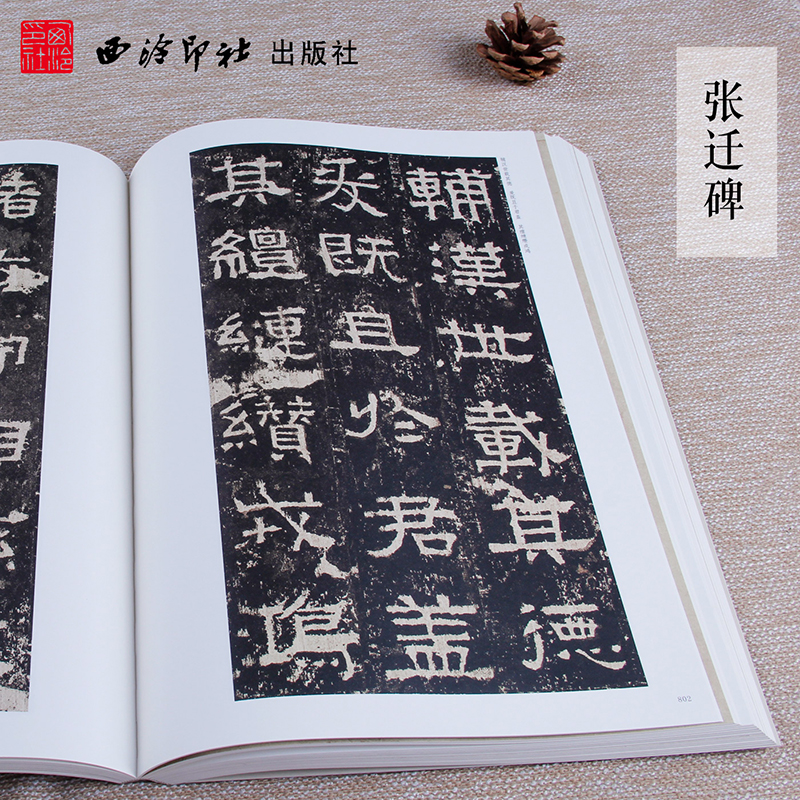 西泠印社
西泠印社 出版社
张迁碑
輔漢世載其德
爰既且於君蓋
其繵縺纘戎鴻
802